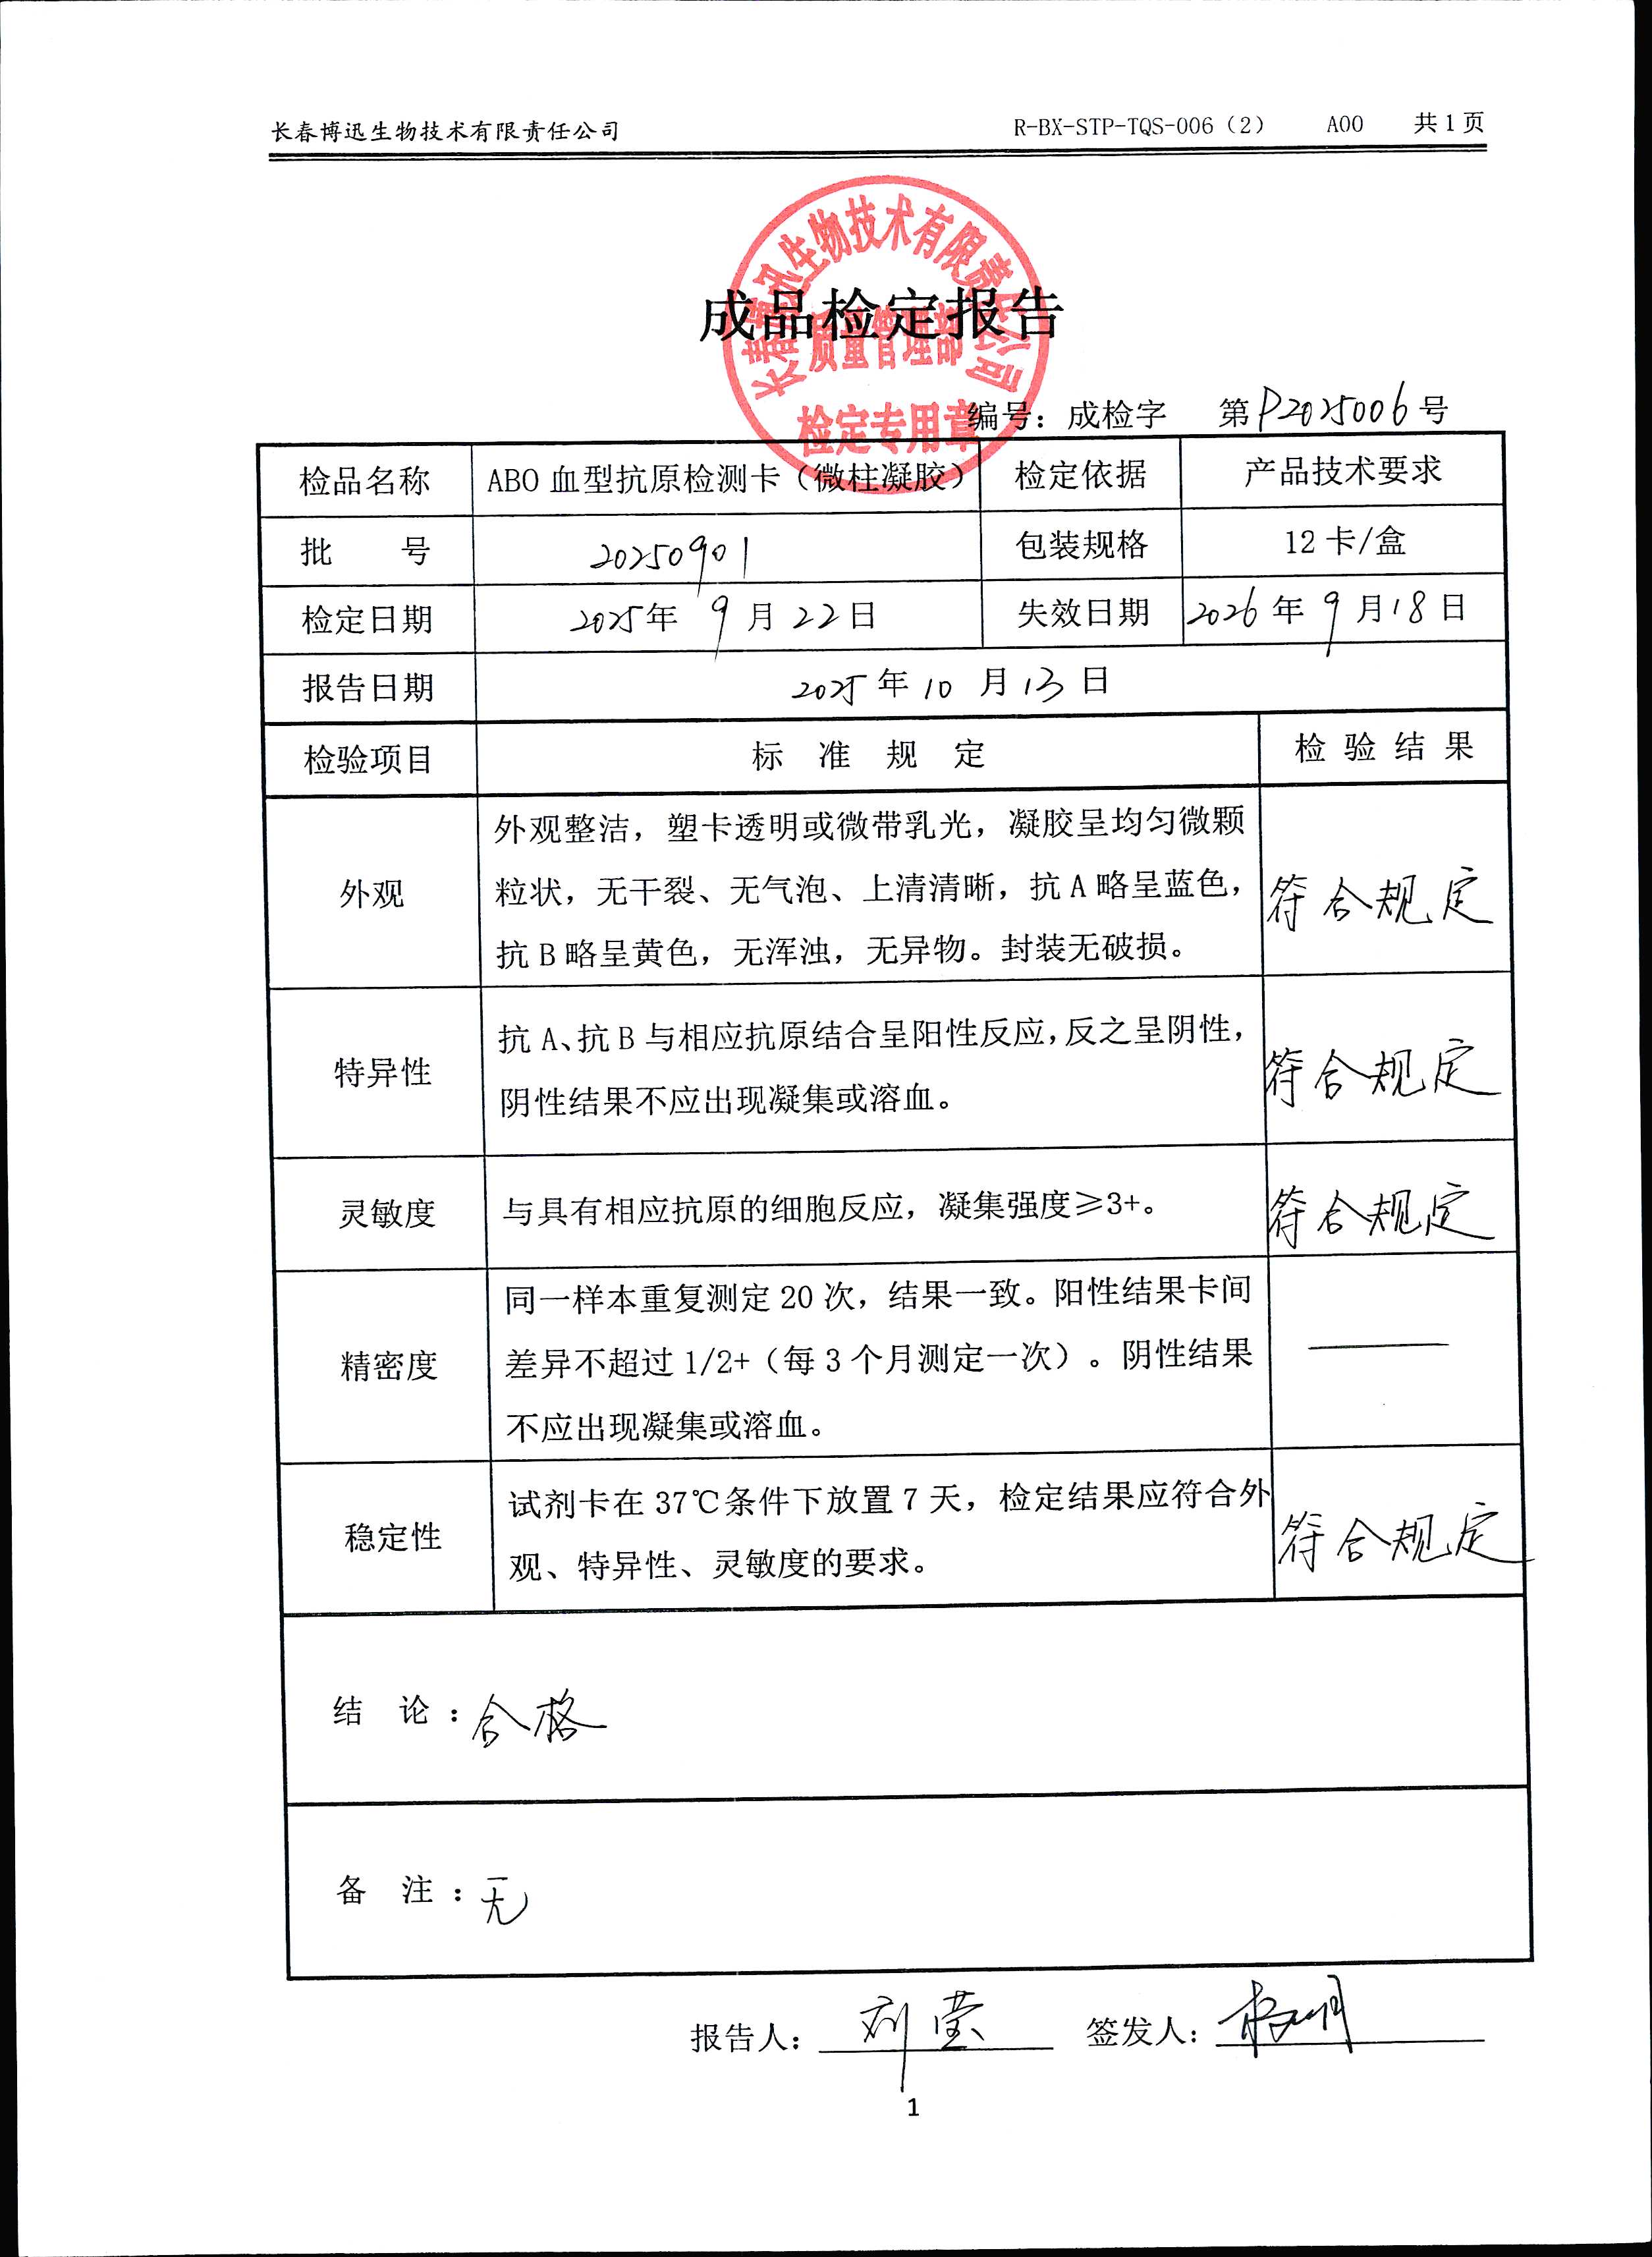 长春博迅生物技术有限责任公司 R-BX-STP-TQS-006（2） A00 共1页
长春博迅生物技术有限责任公司
质量管理部
检定专用章
成品检定报告
编号：成检字 第P2025006号
检品名称 ABO血型抗原检测卡（微柱凝胶） 检定依据 产品技术要求
批 号 20250901 包装规格 12卡/盒
检定日期 2025年9月22日 失效日期 2026年9月18日
报告日期 2025年10月13日
检验项目 标 准 规 定 检 验 结 果
外观整洁，塑卡透明或微带乳光，凝胶呈均匀微颗
外观 粒状，无干裂、无气泡、上清清晰，抗A略呈蓝色， 符合规定
抗B略呈黄色，无浑浊，无异物。封装无破损。
抗A、抗B与相应抗原结合呈阳性反应，反之呈阴性，
特异性 符合规定
阴性结果不应出现凝集或溶血。
灵敏度 与具有相应抗原的细胞反应，凝集强度≥3+。 符合规定
同一样本重复测定20次，结果一致。阳性结果卡间
精密度 差异不超过1/2+（每3个月测定一次）。阴性结果 ——
不应出现凝集或溶血。
试剂卡在37℃条件下放置7天，检定结果应符合外
稳定性 符合规定
观、特异性、灵敏度的要求。
结 论：合格
备 注：无
报告人：刘莹 签发人：
1